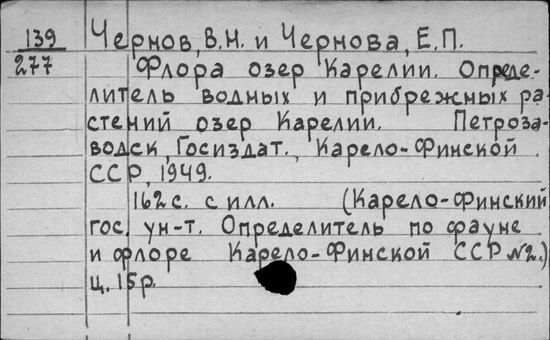 139 Чернов, В.Н. и Чернова, Е.П.
277 Флора озер Карелии. Опреде-
литель водных и прибрежных ра-
стений озер Карелии. Петроза-
водск, Госиздат., Карело-Финской
ССР, 1949.
162 с. с илл. (Карело-Финский
гос. ун-т. Определитель по фауне
и флоре Карело-Финской ССР №2.)
ц. 15 р.